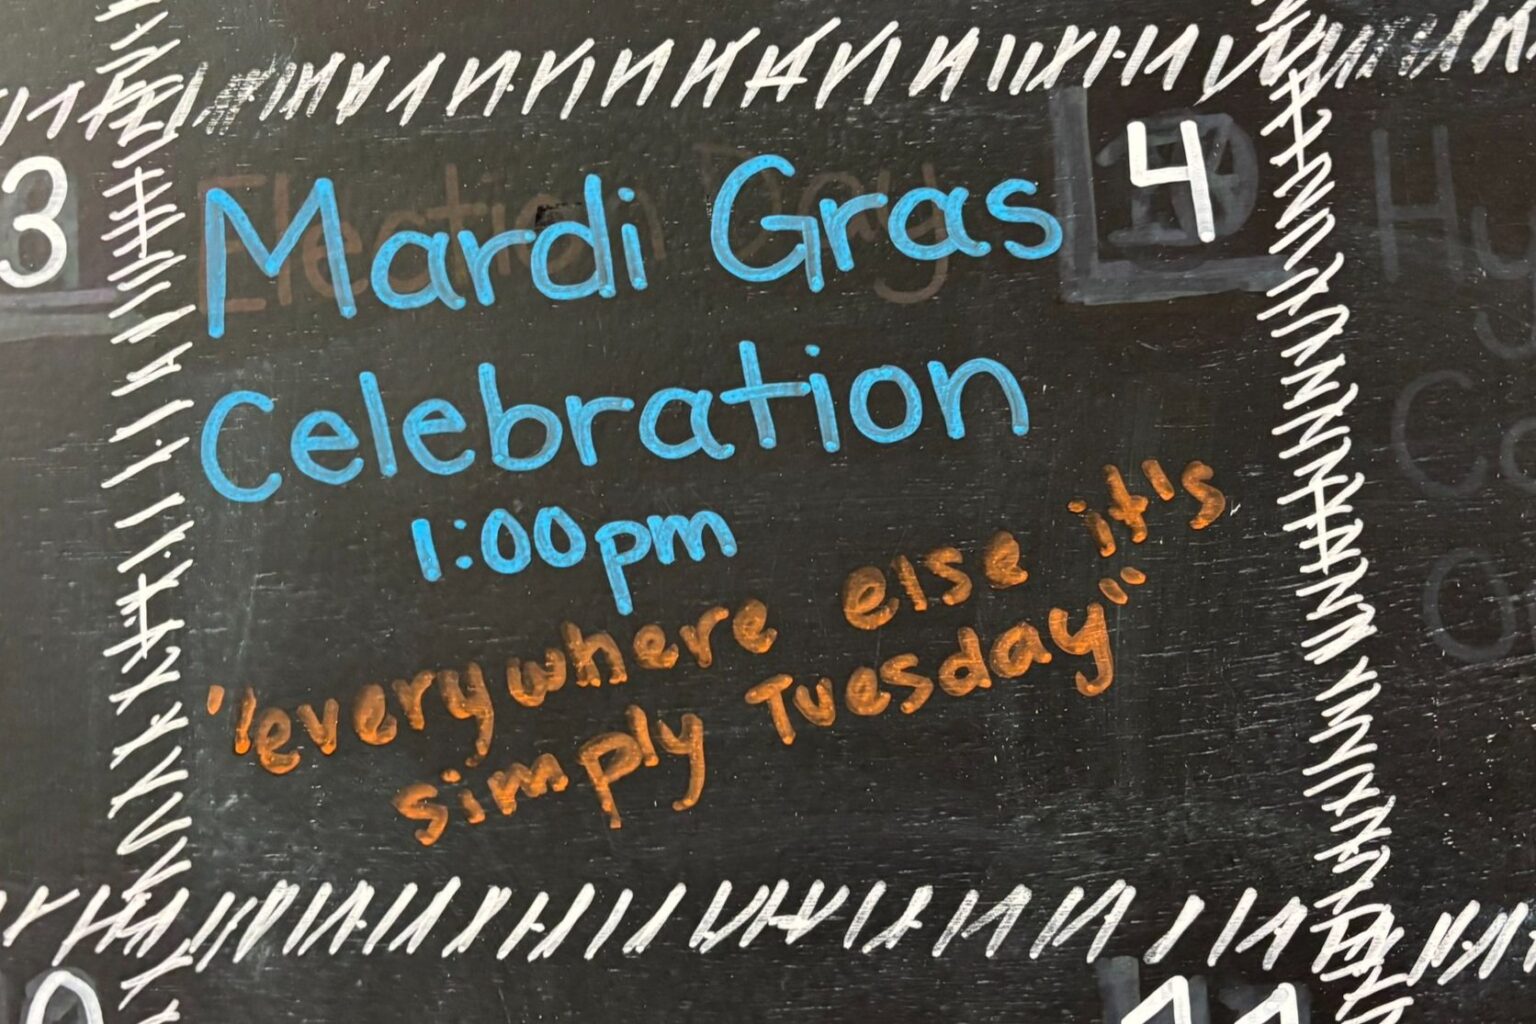 3
4
Election Day
Mardi Gras
Celebration
1:00pm
"everywhere else it's
simply Tuesday"
11